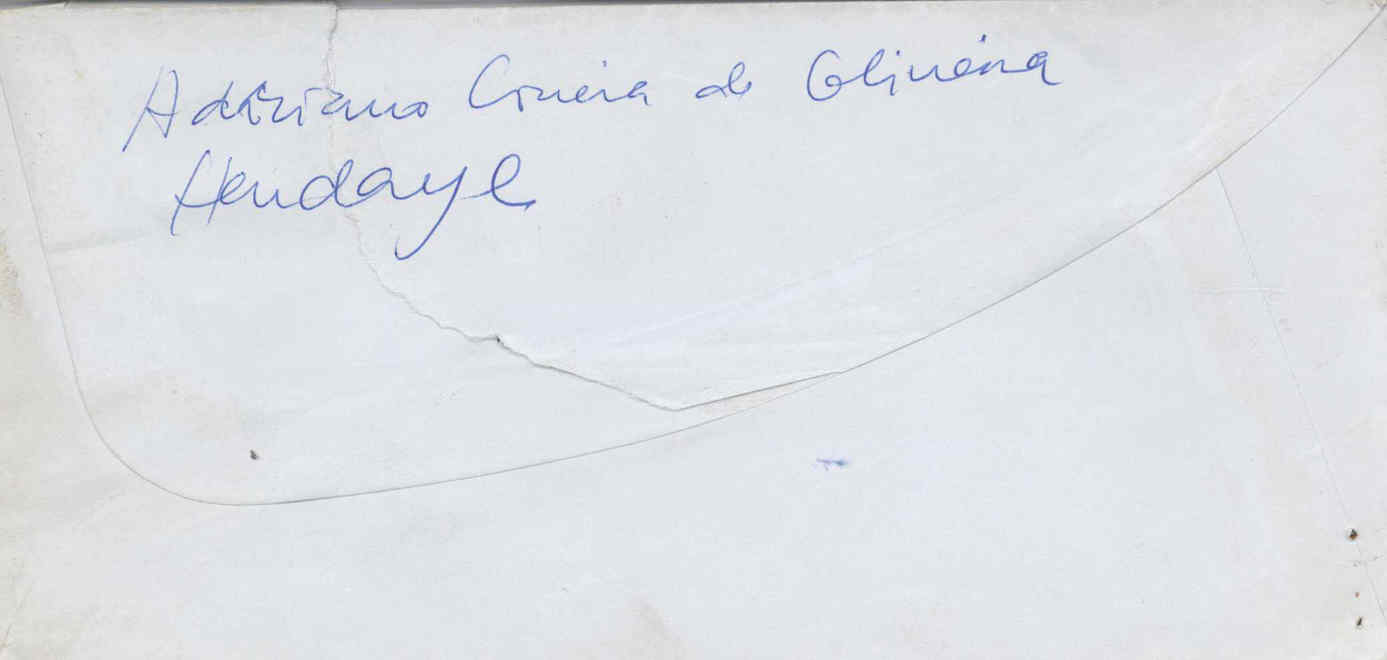 Adriano Crueira de Oliveira
Hendaye